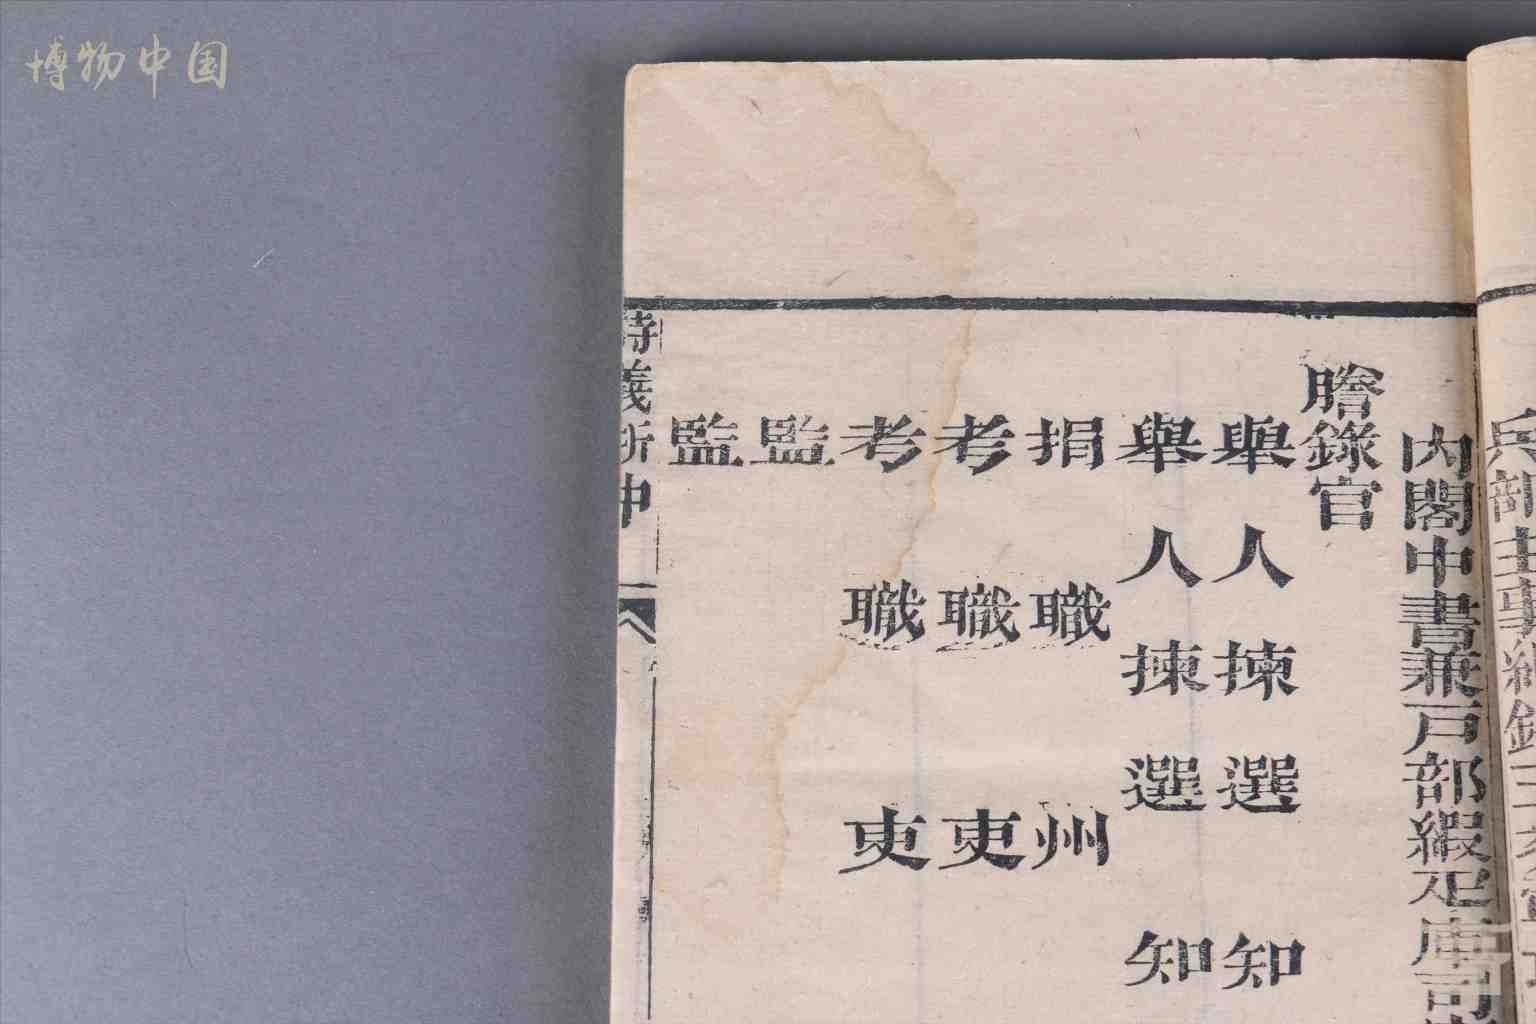 博物中国
兵部主事
內閣中書兼戸部緞疋庫司
謄錄官
舉人揀選知
舉人揀選知
捐職州
考職吏
考職吏
監
監
詩義折中